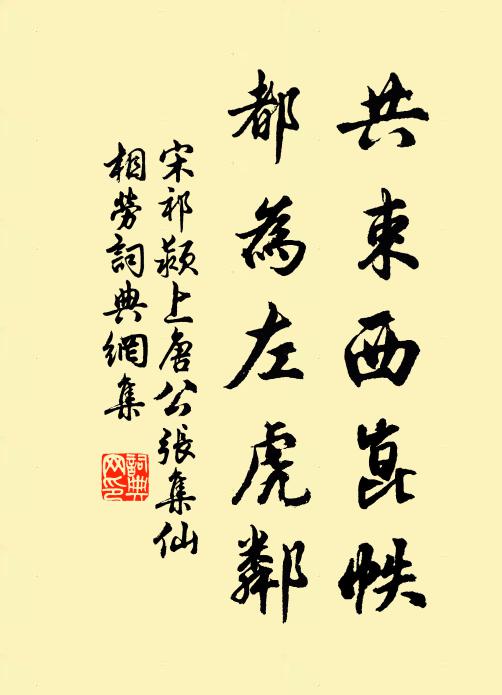 共東西崑帙
都為左虎鄰
宋祁潁上唐公張集仙
相勞詞典網集
詞典网印